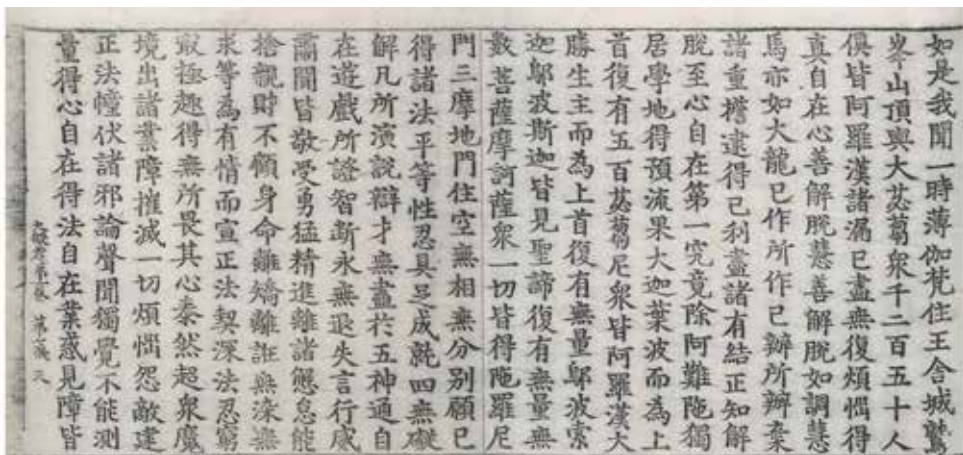 如是我聞一時薄伽梵住王舍城鷲
峯山頂與大苾芻衆千二百五十人
俱皆阿羅漢諸漏已盡無復煩惱得
真自在心善解脫慧善解脫如調慧
馬亦如大龍已作所作已辦所辦棄
諸重擔逮得己利盡諸有結正知解
脫至心自在第一究竟除阿難陁獨
居學地得預流果大迦葉波而為上
首復有五百苾芻尼衆皆阿羅漢大
勝生主而為上首復有無量鄔波索
迦鄔波斯迦皆見聖諦復有無量無
數菩薩摩訶薩衆一切皆得陁羅尼
門三摩地門住空無相無分別願已
得諸法平等性忍具足成就四無礙
解凡所演說辯才無盡於五神通自
在遊戲所證智斷永無退失言行威
肅聞皆敬受勇猛精進離諸懈怠能
捨親財不顧身命離矯離誑無染無
求等為有情而宣正法契深法忍窮
最極趣得無所畏其心泰然超衆魔
境出諸業障摧滅一切煩惱怨敵建
正法幢伏諸邪論聲聞獨覺不能測
量得心自在得法自在業惑見障皆